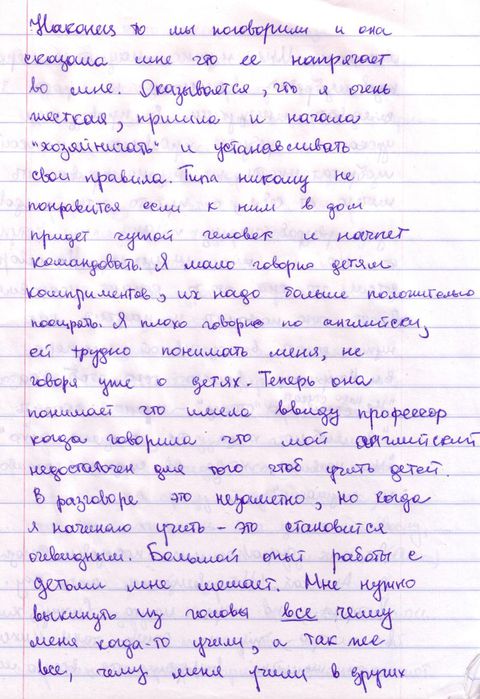 Наконец то мы поговорили и она
сказала мне что ее напрягает
во мне. Оказывается, что я очень
жесткая, пришла и начала
"хозяйничать" и устанавливать
свои правила. Типа никому не
понравится если к ним в дом
придет чужой человек и начнет
командовать. Я мало говорю детям
комплиментов, их надо больше положительно
поощрять. Я плохо говорю по английски,
ей трудно понимать меня, не
говоря уже о детях. Теперь она
понимает что имела ввиду профессор
когда говорила что мой английский
недостаточен для того чтоб учить детей.
В разговоре это незаметно, но когда
я начинаю учить - это становится
очевидным. Большой опыт работы с
детьми мне мешает. Мне нужно
выкинуть из головы все чему
меня когда-то учили, а так же
все, чему меня учили в других